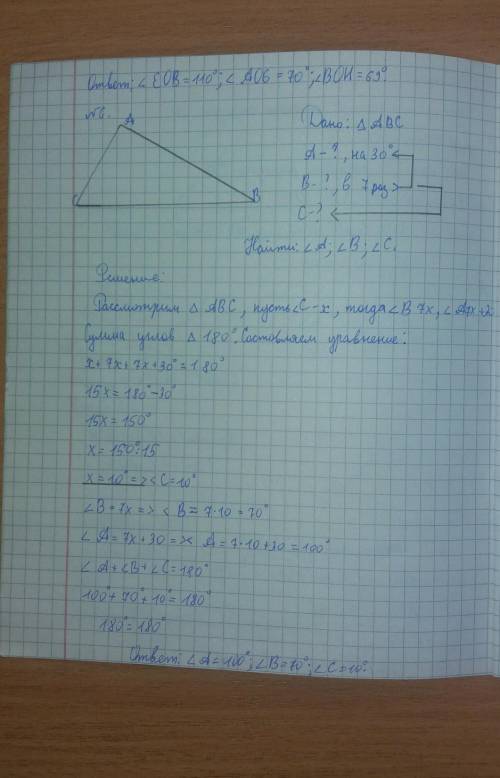 Ответ: ∠ EOB = 110°; ∠ AOB = 70°; ∠BOH = 69°
№6.
A
C
B
Дано: △ ABC
A - ?, на 30°
B - ?, в 7 раз >
C - ?
Найти: ∠A; ∠B; ∠C.
Решение:
Рассмотрим △ ABC, пусть ∠C - x, тогда ∠B 7x, ∠A 7x +
Сумма углов △ 180°. Составляем уравнение:
x + 7x + 7x + 30° = 180°
15x = 180° - 30°
15x = 150°
x = 150°:15
x = 10° => < C = 10°
∠B = 7x => < B = 7·10 = 70°
∠ A = 7x + 30 => < A = 7·10 + 30 = 100°
∠ A + ∠B + ∠C = 180°
100° + 70° + 10° = 180°
180° = 180°
Ответ: ∠A = 100°; ∠B = 70°; ∠C = 10°.